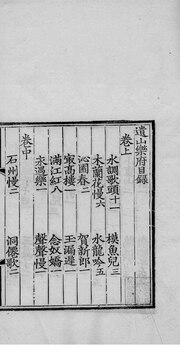 遺山樂府目録
卷上
水調歌頭十一　摸魚兒三
木蘭花慢六　水龍吟五
沁園春二　賀新郎
㝡高樓一　玉漏遲一
滿江紅八　念奴嬌一
永遇樂一　聲聲慢一
卷中
石州慢二　洞僊歌二